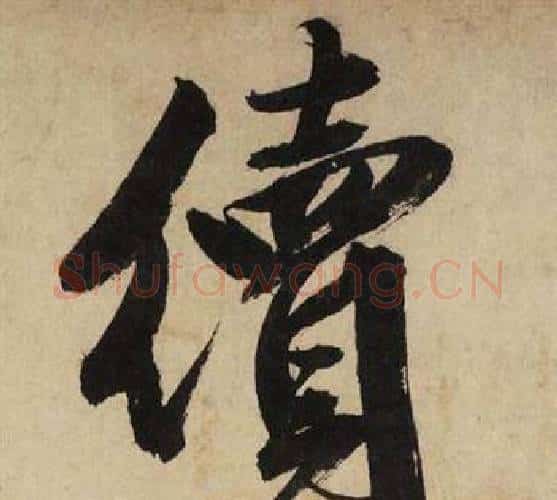 續
Shufawang.CN